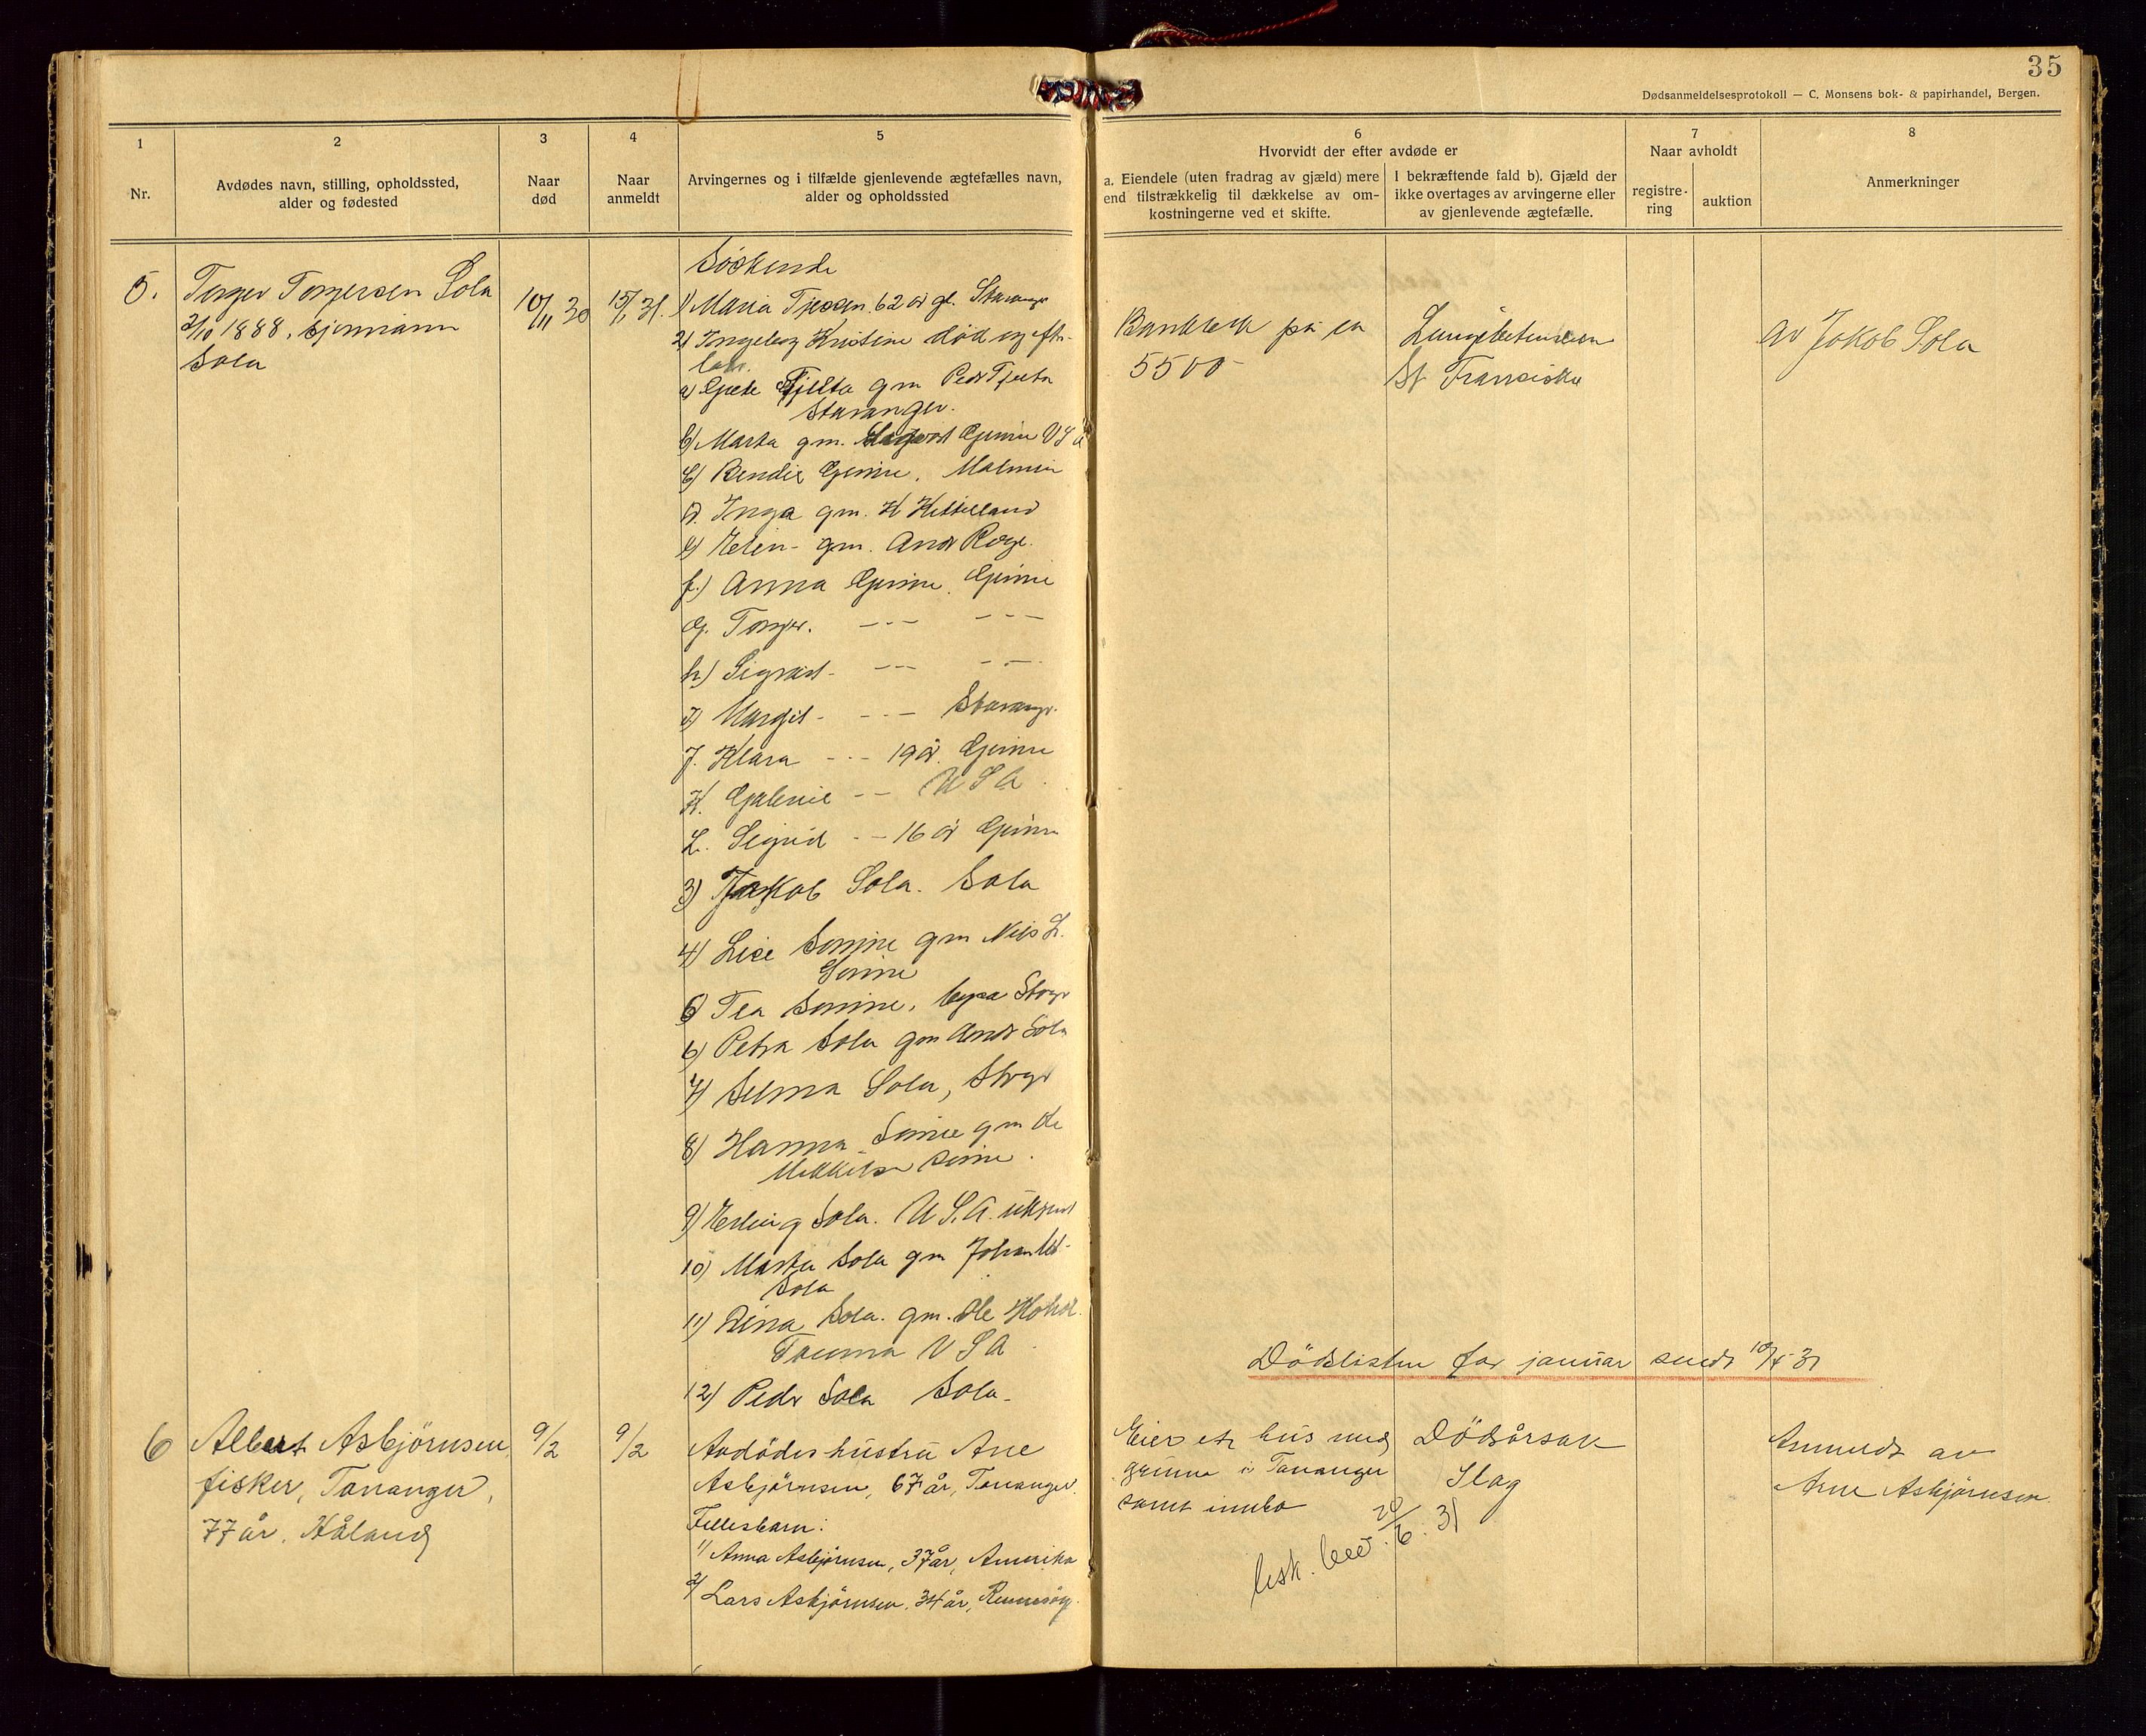 35
Dødsanmeldelsesprotokoll — C. Monsens bok- & papirhandel, Bergen.
1
Nr.
2
Avdødes navn, stilling, opholdssted,
alder og fødested
3
Naar
død
4
Naar
anmeldt
5
Arvingernes og i tilfælde gjenlevende ægtefælles navn,
alder og opholdssted
6
Hvorvidt der efter avdøde er
a. Eiendele (uten fradrag av gjæld) mere
end tilstrækkelig til dækkelse av om-
kostningerne ved et skifte.
I bekræftende fald b). Gjæld der
ikke overtages av arvingerne eller
av gjenlevende ægtefælle.
7
Naar avholdt
registre-
ring
auktion
8
Anmerkninger
5.
Torger Torgersen Sola
2/10 1888, sjømann
Sola
10/11 30
15/1 31.
Söskende
1) Maria 62 år gl. Stavanger
2) Ingeborg Kristine död og efter-
later.
a) Tjelta gm Peder Tjelta
Stavanger.
b) Marta gm. USA
c) Bendix Malmin
d. Inga gm. H
e) Elin gm. Andr Rege.
f.) Anna Grime. Grime
g. Torger. --- ---
h) Sigvald - --- ---
i) Margit - --- Stavanger.
j. Klara --- 19 år. Grime
k. -- USA.
L. Sigrid -- 16 år Grime
3) Jakob Sola. Sola
4) Lise Sømme gm Nils L.
Sømme
5) Tea Sømme, Stvgr
6) Petra Sola gm Andr Sola
7) Selma Sola, Stvgr
8) Hanna Sømme gm Ole
Mikkelsen Sømme.
9) Erling Sola. U.S.A. ukjent
10) Marta Sola gm Johan
Sola
11) Dina Sola. gm. Ole
Tacoma USA
12) Peder Sola Sola.
Bankbok på kr
5500 -
St. Franciskus
Av Jakob Sola
Dödslisten for januar sendt 31
6
Albert Asbjörnsen,
fisker, Tananger,
77 år. Håland
9/2
9/2
Avdödes hustru Ane
Asbjörnsen, 67 år, Tananger.
Fellesbarn:
1/ Anna Asbjörnsen, 37 år, Amerika
2/ Lars Asbjörnsen, 34 år, Rennesöy.
Eier et hus med
grunn i Tananger
samt innbo
Dödsårsak
Slag
20/6. 31
Anmeldt av
Arne Asbjörnsen